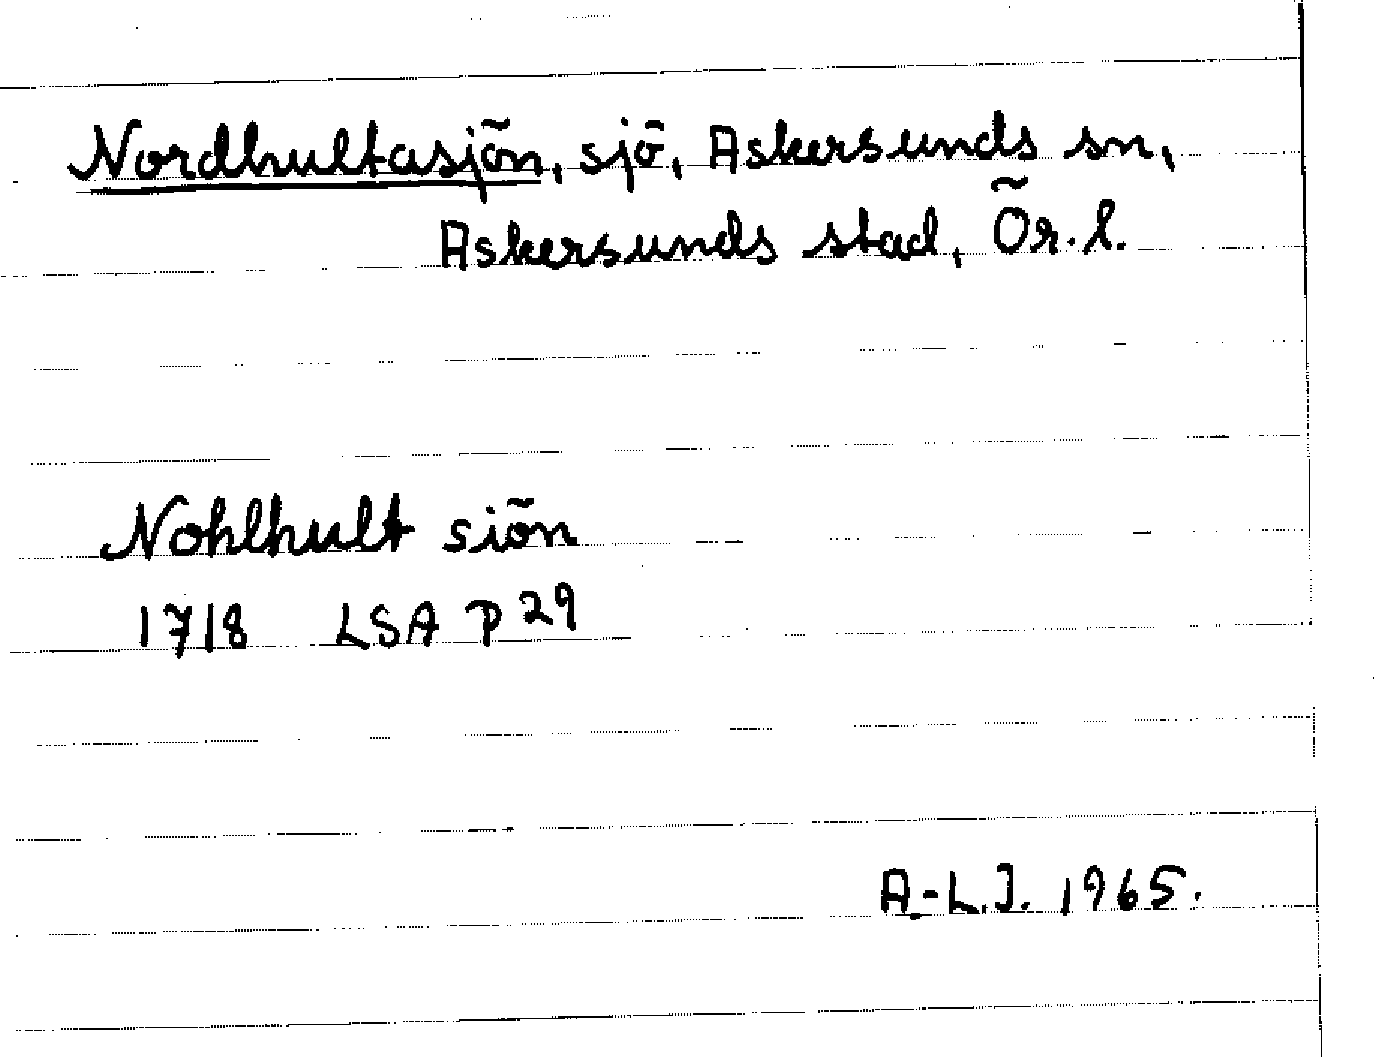 Nordhultasjön, sjö, Askersunds sn,
Askersunds stad, Ör. l.
Nohlhult siön
1718 LSA P 29
A.-L.J. 1965.